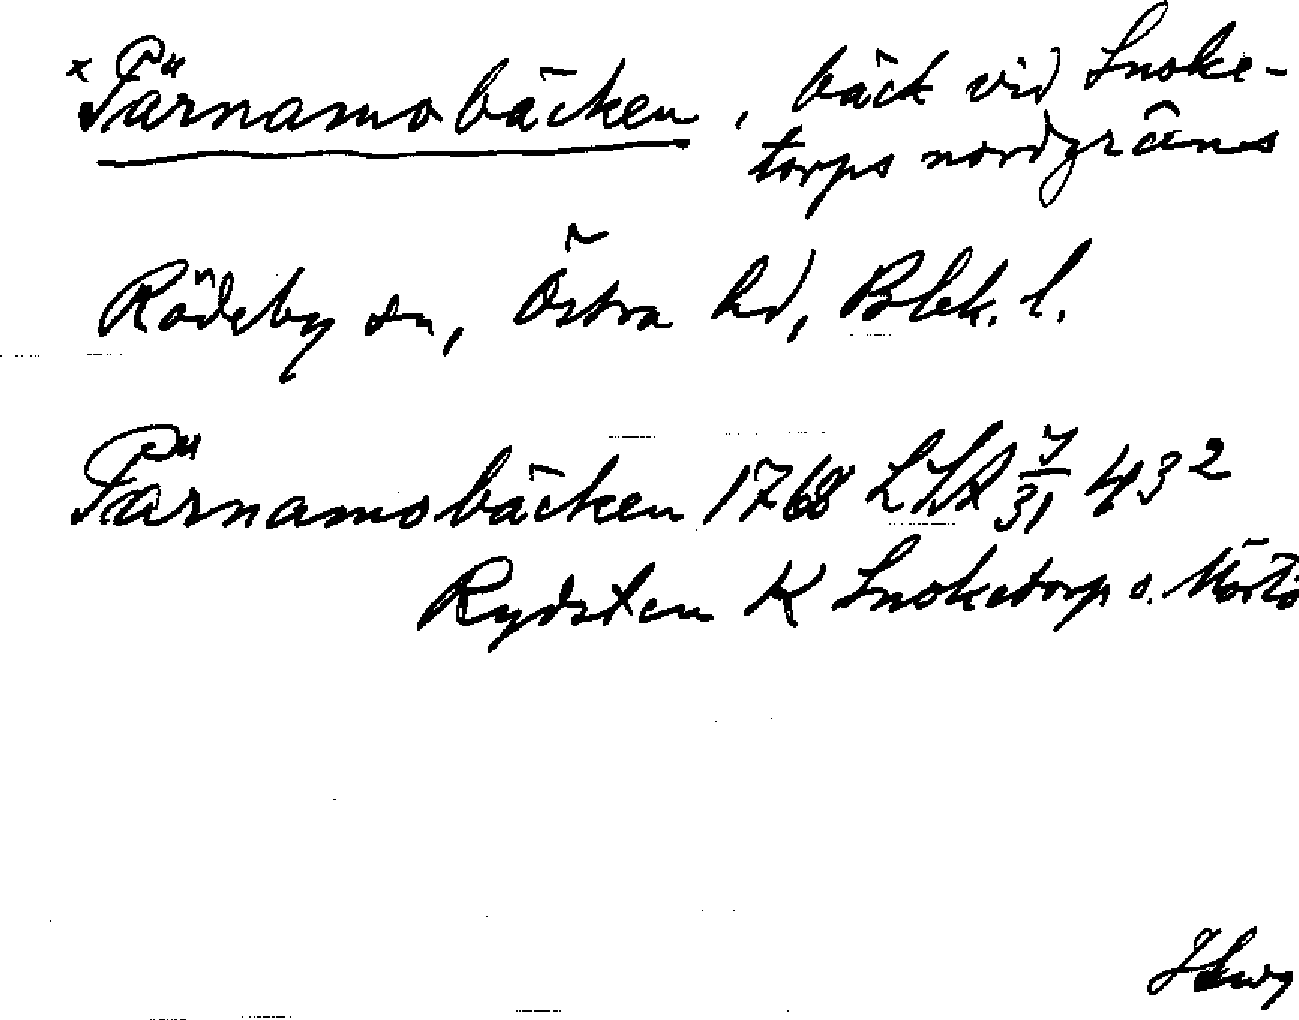 × Pärnamobäcken, bäck vid Snoke-
torps nordgräns
Rödeby sn, Östra hd, Blek. l.
Pärnamobäcken 1768 LSA 43²
Rydsten K Snoketorp o.